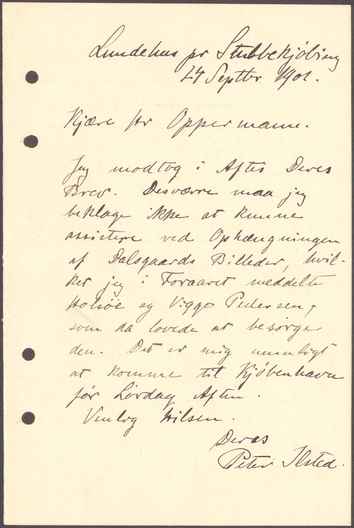 Lundehus pr Stubbekjöbing
24 Septbr 1901.
Kjære Hr Oppermann.
Jeg modtog i Aftes Deres
Brev. Desværre maa jeg
beklage ikke at kunne
assistere ved Ophængningen
af Dalsgaards Billeder, hvil-
ket jeg i Foraaret meddelte
Holsöe og Viggo Pedersen,
som da lovede at besörge
den. Det er mig umuligt
at komme til Kjöbenhavn
för Lördag Aften.
Venlig Hilsen.
Deres
Peter Ilsted.